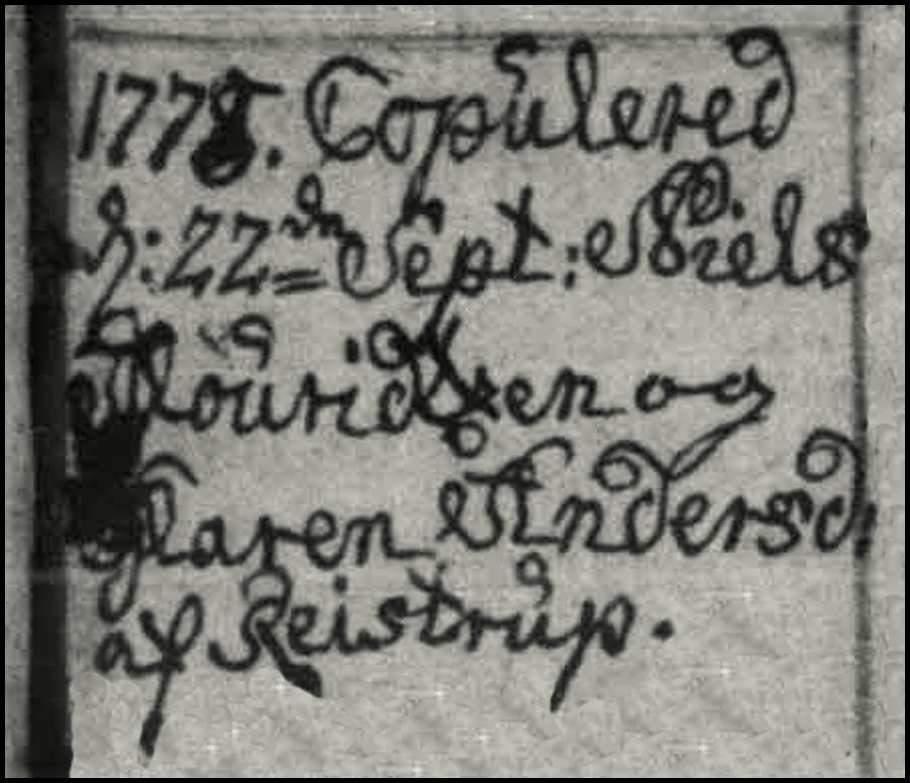 1778. Copulered
d: 22=den Sept: Niels
Mouridsen og
Maren Andersd:
af Keistrup.